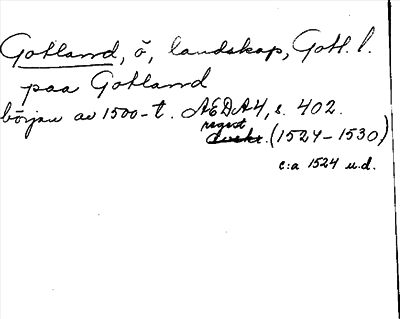 Gotland, ö, landskap, Gotl. l.
paa Gotland
början av 1500-t. AEDA4, s. 402.
regest
(1524-1530)
c:a 1524 u.d.